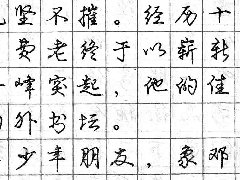 坚不摧。经历十
黄老终于以崭新
峰突起，他的佳
外书坛。
少年朋友，象邓